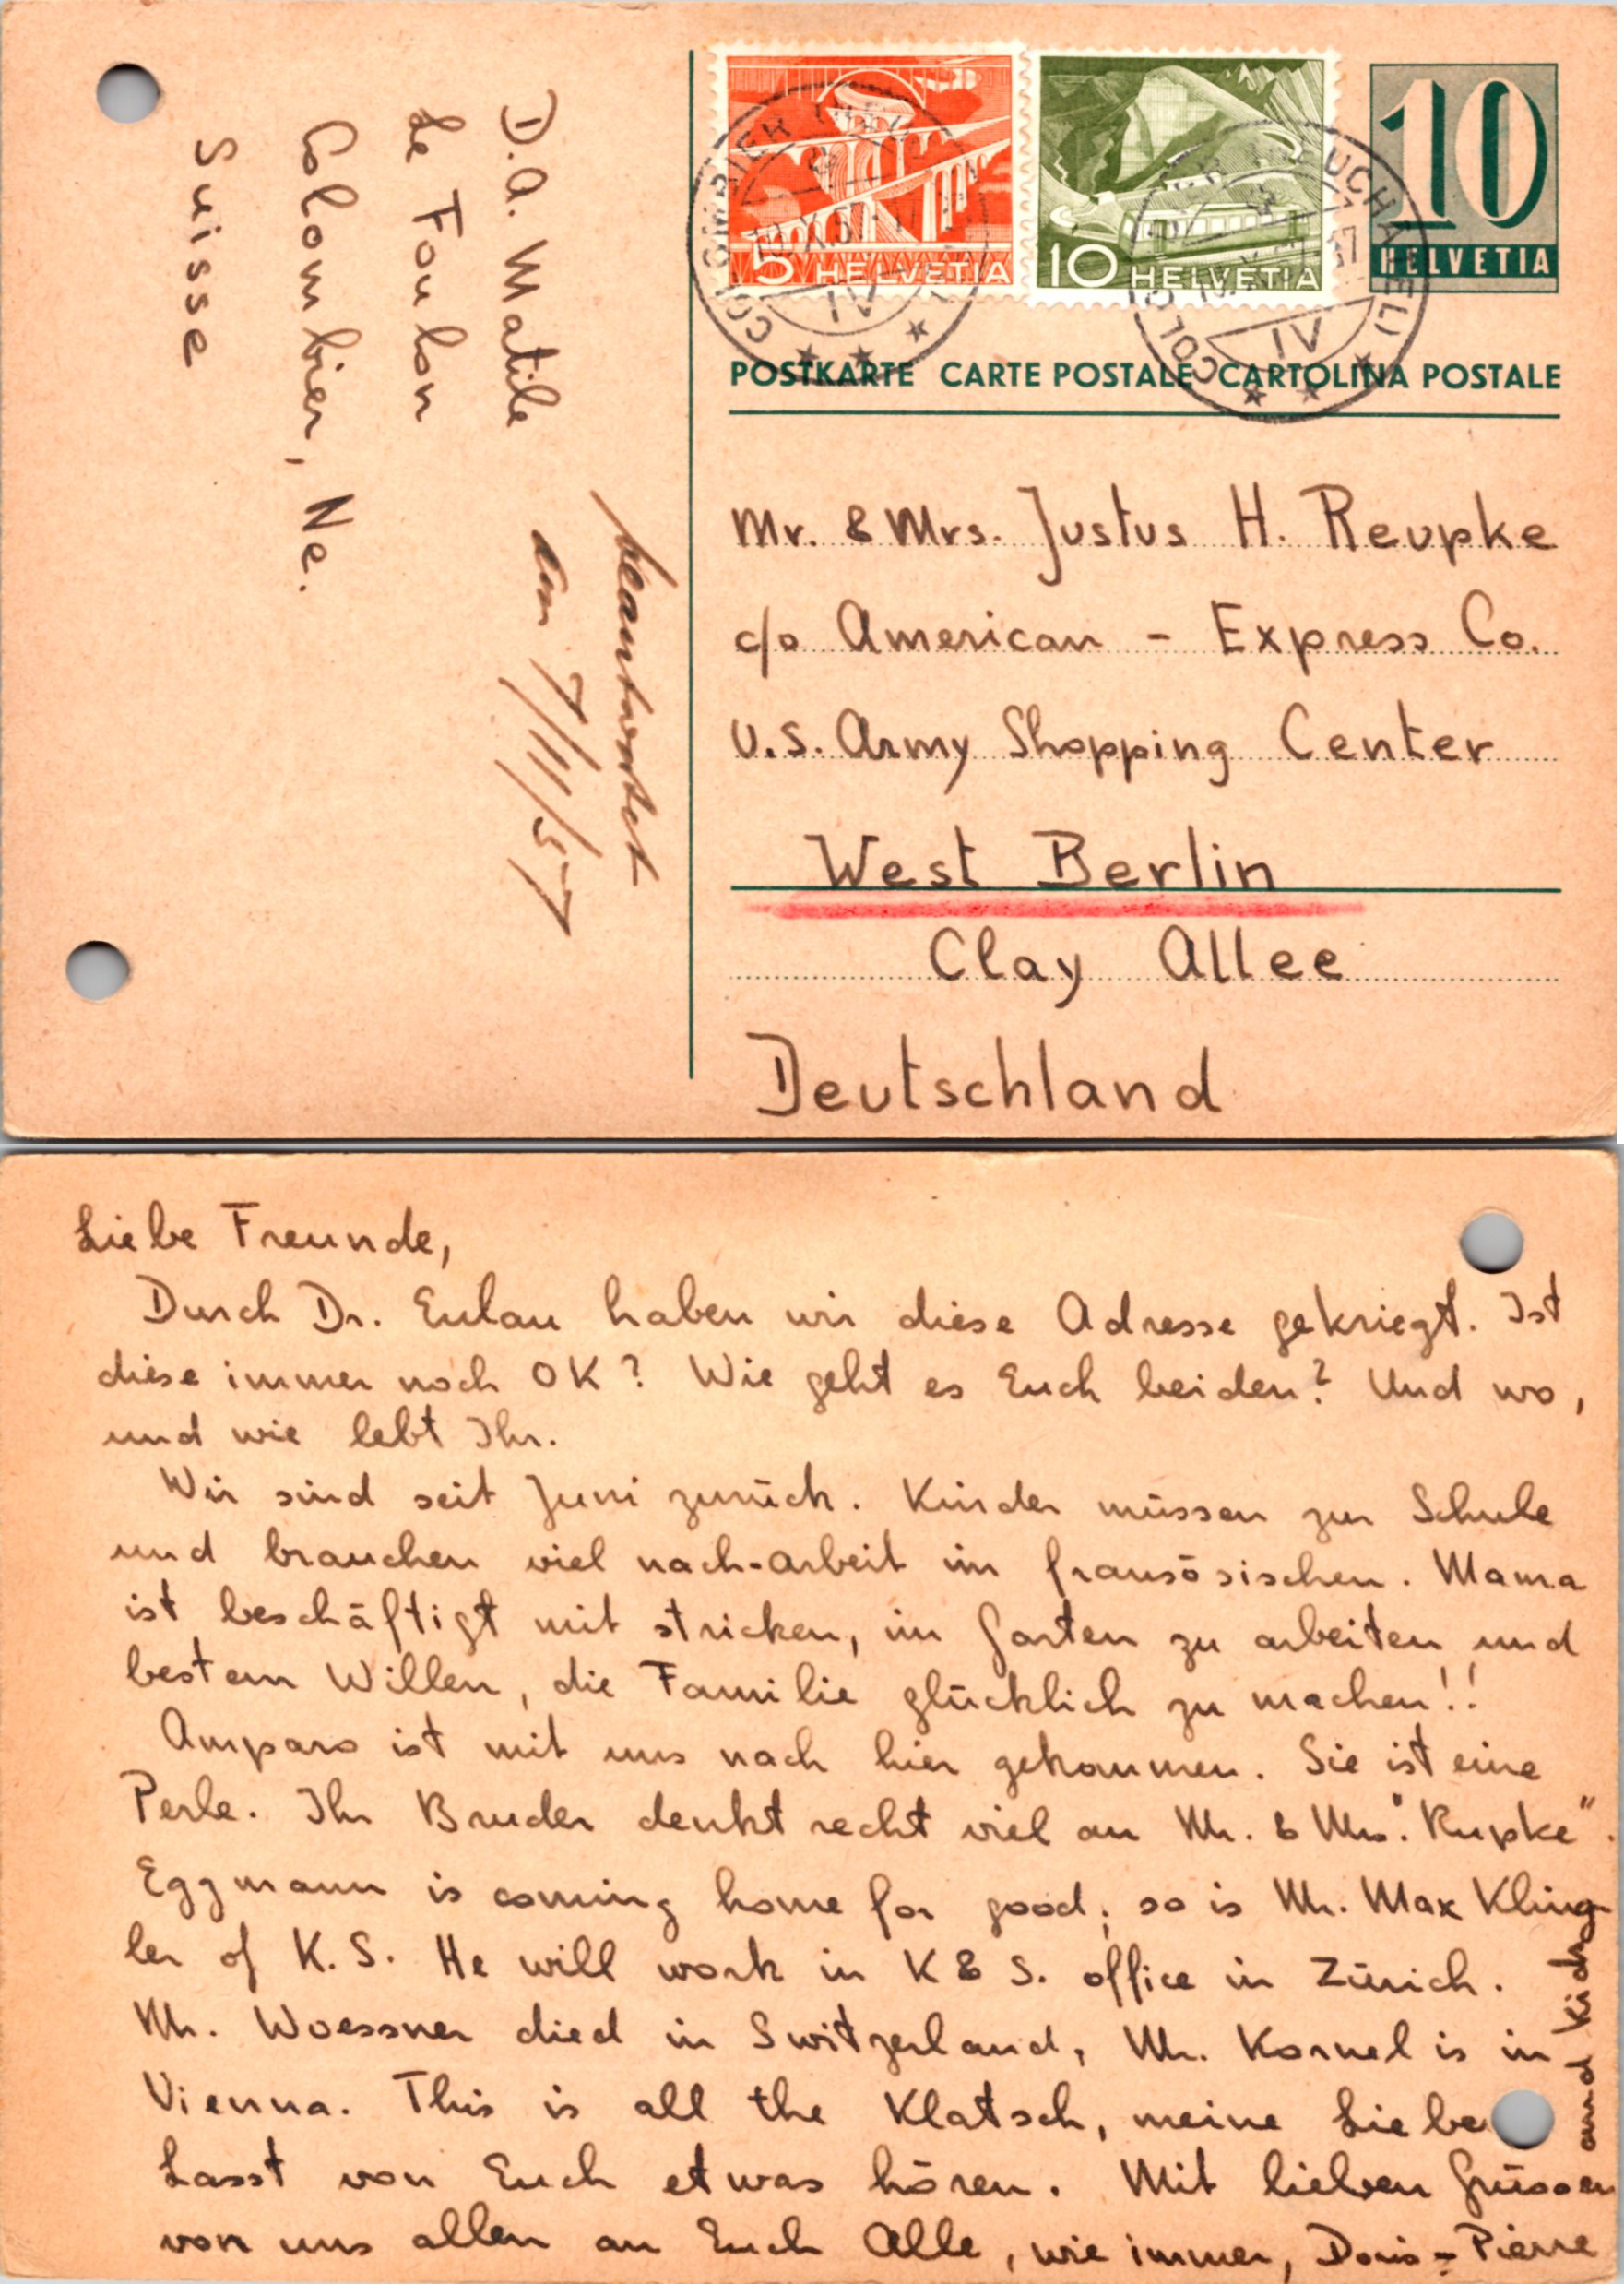 D.A. Matile
Le Foulon
Colombier, Ne.
Suisse
beantwortet
am 7/11/57
5 HELVETIA
10 HELVETIA
10
HELVETIA
COLOMBIER
POSTKARTE CARTE POSTALE CARTOLINA POSTALE
Mr. & Mrs. Justus H. Reupke
c/o American - Express Co.
U.S. Army Shopping Center
West Berlin
Clay Allee
Deutschland
Liebe Freunde,
Durch Dr. Eulau haben wir diese Adresse gekriegt. Ist
diese immer noch OK? Wie geht es Euch beiden? Und wo,
und wie lebt Ihr.
Wir sind seit Juni zurück. Kinder müssen zur Schule
und brauchen viel nach-arbeit im fransösischen. Mama
ist beschäftigt mit stricken, im Garten zu arbeiten und
bestem Willen, die Familie glücklich zu machen!!
Amparo ist mit uns nach hier gekommen. Sie ist eine
Perle. Ihr Bruder denkt recht viel an Mr. & Mrs. "Rupke".
Eggmann is coming home for good; so is Mr. Max Kling-
ler of K.S. He will work in K & S. office in Zürich.
Mr. Woessner died in Switzerland, Mr. Kornel is in
Vienna. This is all the Klatsch, meine Liebe
Lasst von Euch etwas hören. Mit lieben Grüssen
von uns allen an Euch Alle, wie immer, Doris - Pierre
and kids